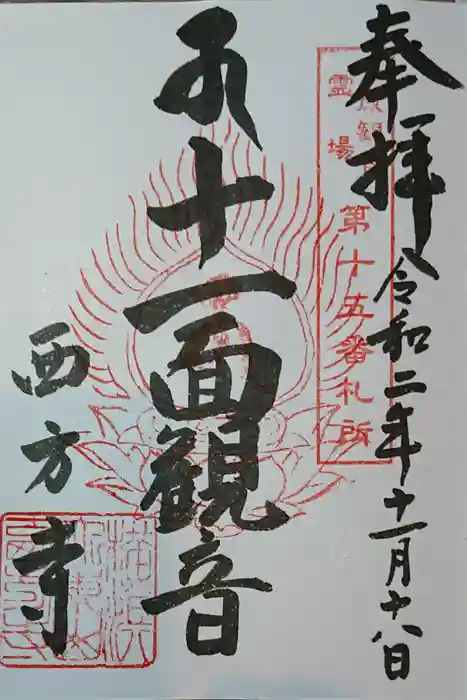 奉拝
令和二年十一月十八日
観
霊場
第十五番札所
十一面観音
西方寺
横浜